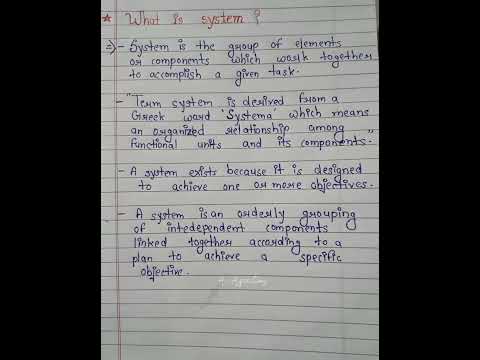 * What is system ?
⇒ - System is the group of elements
or components which work together
to accomplish a given task.
- "Term system is derived from a
Greek word 'Systema' which means
an organized relationship among
functional units and its components."
- A system exists because it is designed
to achieve one or more objectives.
- A system is an orderly grouping
of intedependent components
linked together according to a
plan to achieve a specific
objective.